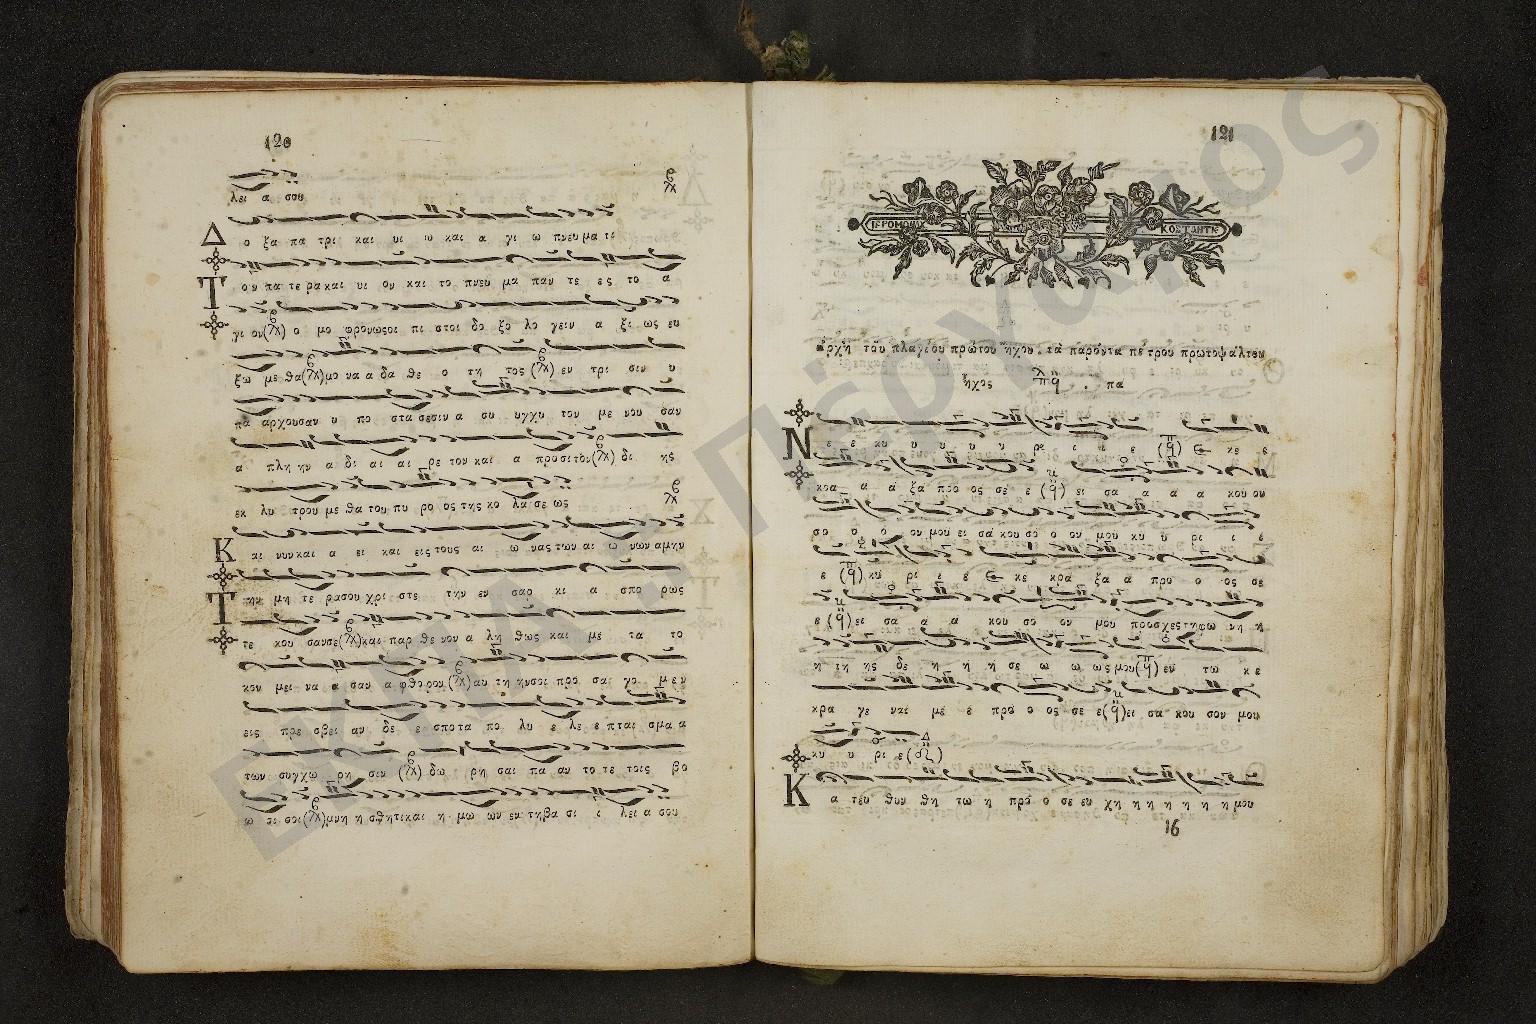 120
λει α σου
Δ ο ξα πα τρι και υι ω και α γι ω πνευ μα τι
Τ ον πα τε ρα και υι ον και το πνευ μα παν τε ες το α
γι ον ο μο φρονως οι πι στοι δο ξο λο γειν α ξι ως ευ
ξω με θα μο να α δα θε ο τη τος εν τρι σιν υ
πα αρχουσαν υ πο στα σεσιν α συ υγχυ τον με νου σαν
α πλη ην α δι αι αι ρε τον και α προσιτον δι ης
εκ λυ τρου με θα του πυ ρο ος της κο λα σε ως
Κ αι νυν και α ει και εις τους αι ω νας των αι ω νων αμην
Τ ην μη τε ρα σου χρι στε την εν σαρ κι α σπο ρως
τε κου σαν σε και παρ θε νον α λη θως και με τα το
κον μει να α σαν α φθορον αυ τη ην σοι προ σα γο μεν
εις πρε σβει αν δε ε σποτα πο λυ ε λε ε πται σμα α
των συγχω ρη σιν δω ρη σαι πα αν το τε τοις βο
ω σι σοι μνη η σθητι και η μω ων εν τη βα σι ι λει α σου
121
ΙΕΡΟΜΟΝ ΚΟΣΤΑΝΤΙ
ἀρχὴ τοῦ πλαγίου πρώτου ἤχου. τὰ παρόντα πέτρου πρωτοψάλτου
ἦχος πα
Ν ε ε κυ υ υ υ υ ρι ι ι ε ε κε ε
κρα α α ξα προ ος σε ε ει σα α α α κου ου
σο ο ο ον μου ει σα κου σο ο ον μου κυ υ ρι ι ε
ε κυ ρι ι ε ε κε κρα ξα α προ ο ος σε
ε ει σα α α κου σο ον μου προσχες τη φω νη η
η τη ης δε η η η σε ω ω ως μου εν τω κε
κρα γε ναι με ε προ ο ος σε ε ει σα κου σον μου
κυ υ ρι ε
Κ α τευ θυν θη τω η προ ο σε ευ χη η η η η η η μου
16